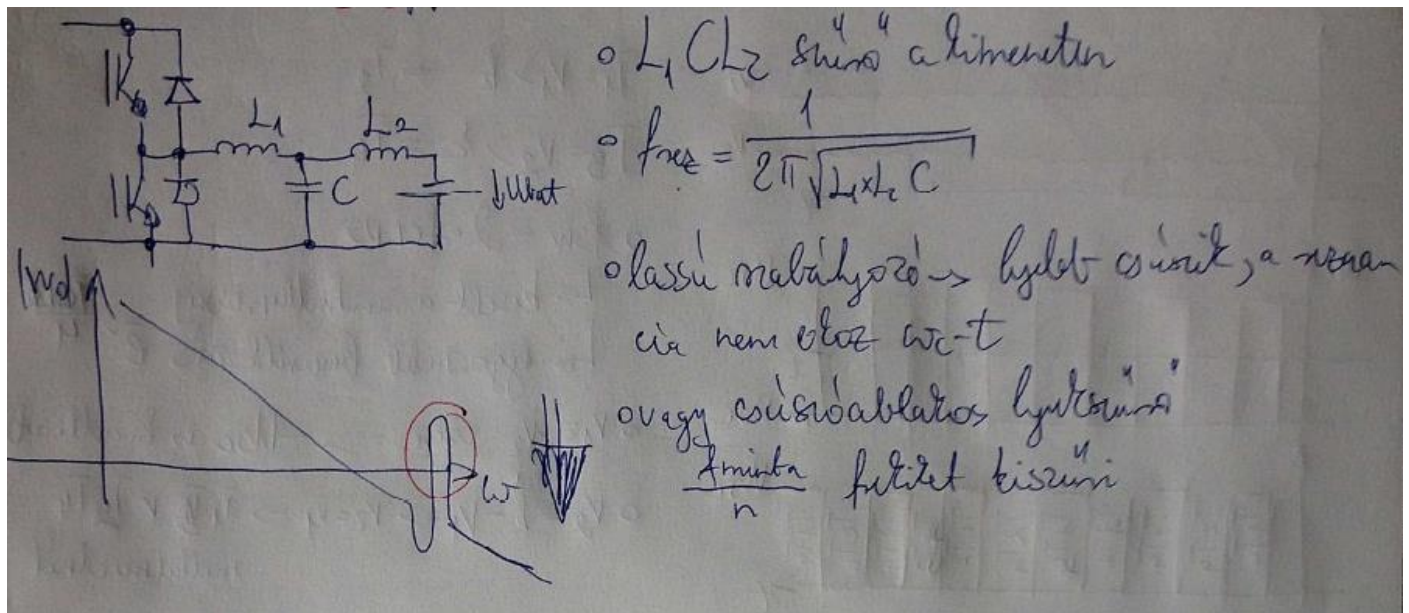 1K
1K
L1
L2
C
↓Ubat
|Wd|
ω
L1CL2 szűrő a kimeneten
frez = 1 / 2π√L1×L2 C
lassú szabályozó → lejjebb csúszik, a rezonan
cia nem okoz ωc-t
vagy csúszóablakos lyukszűrő
fminta / n fkéket kiszűri